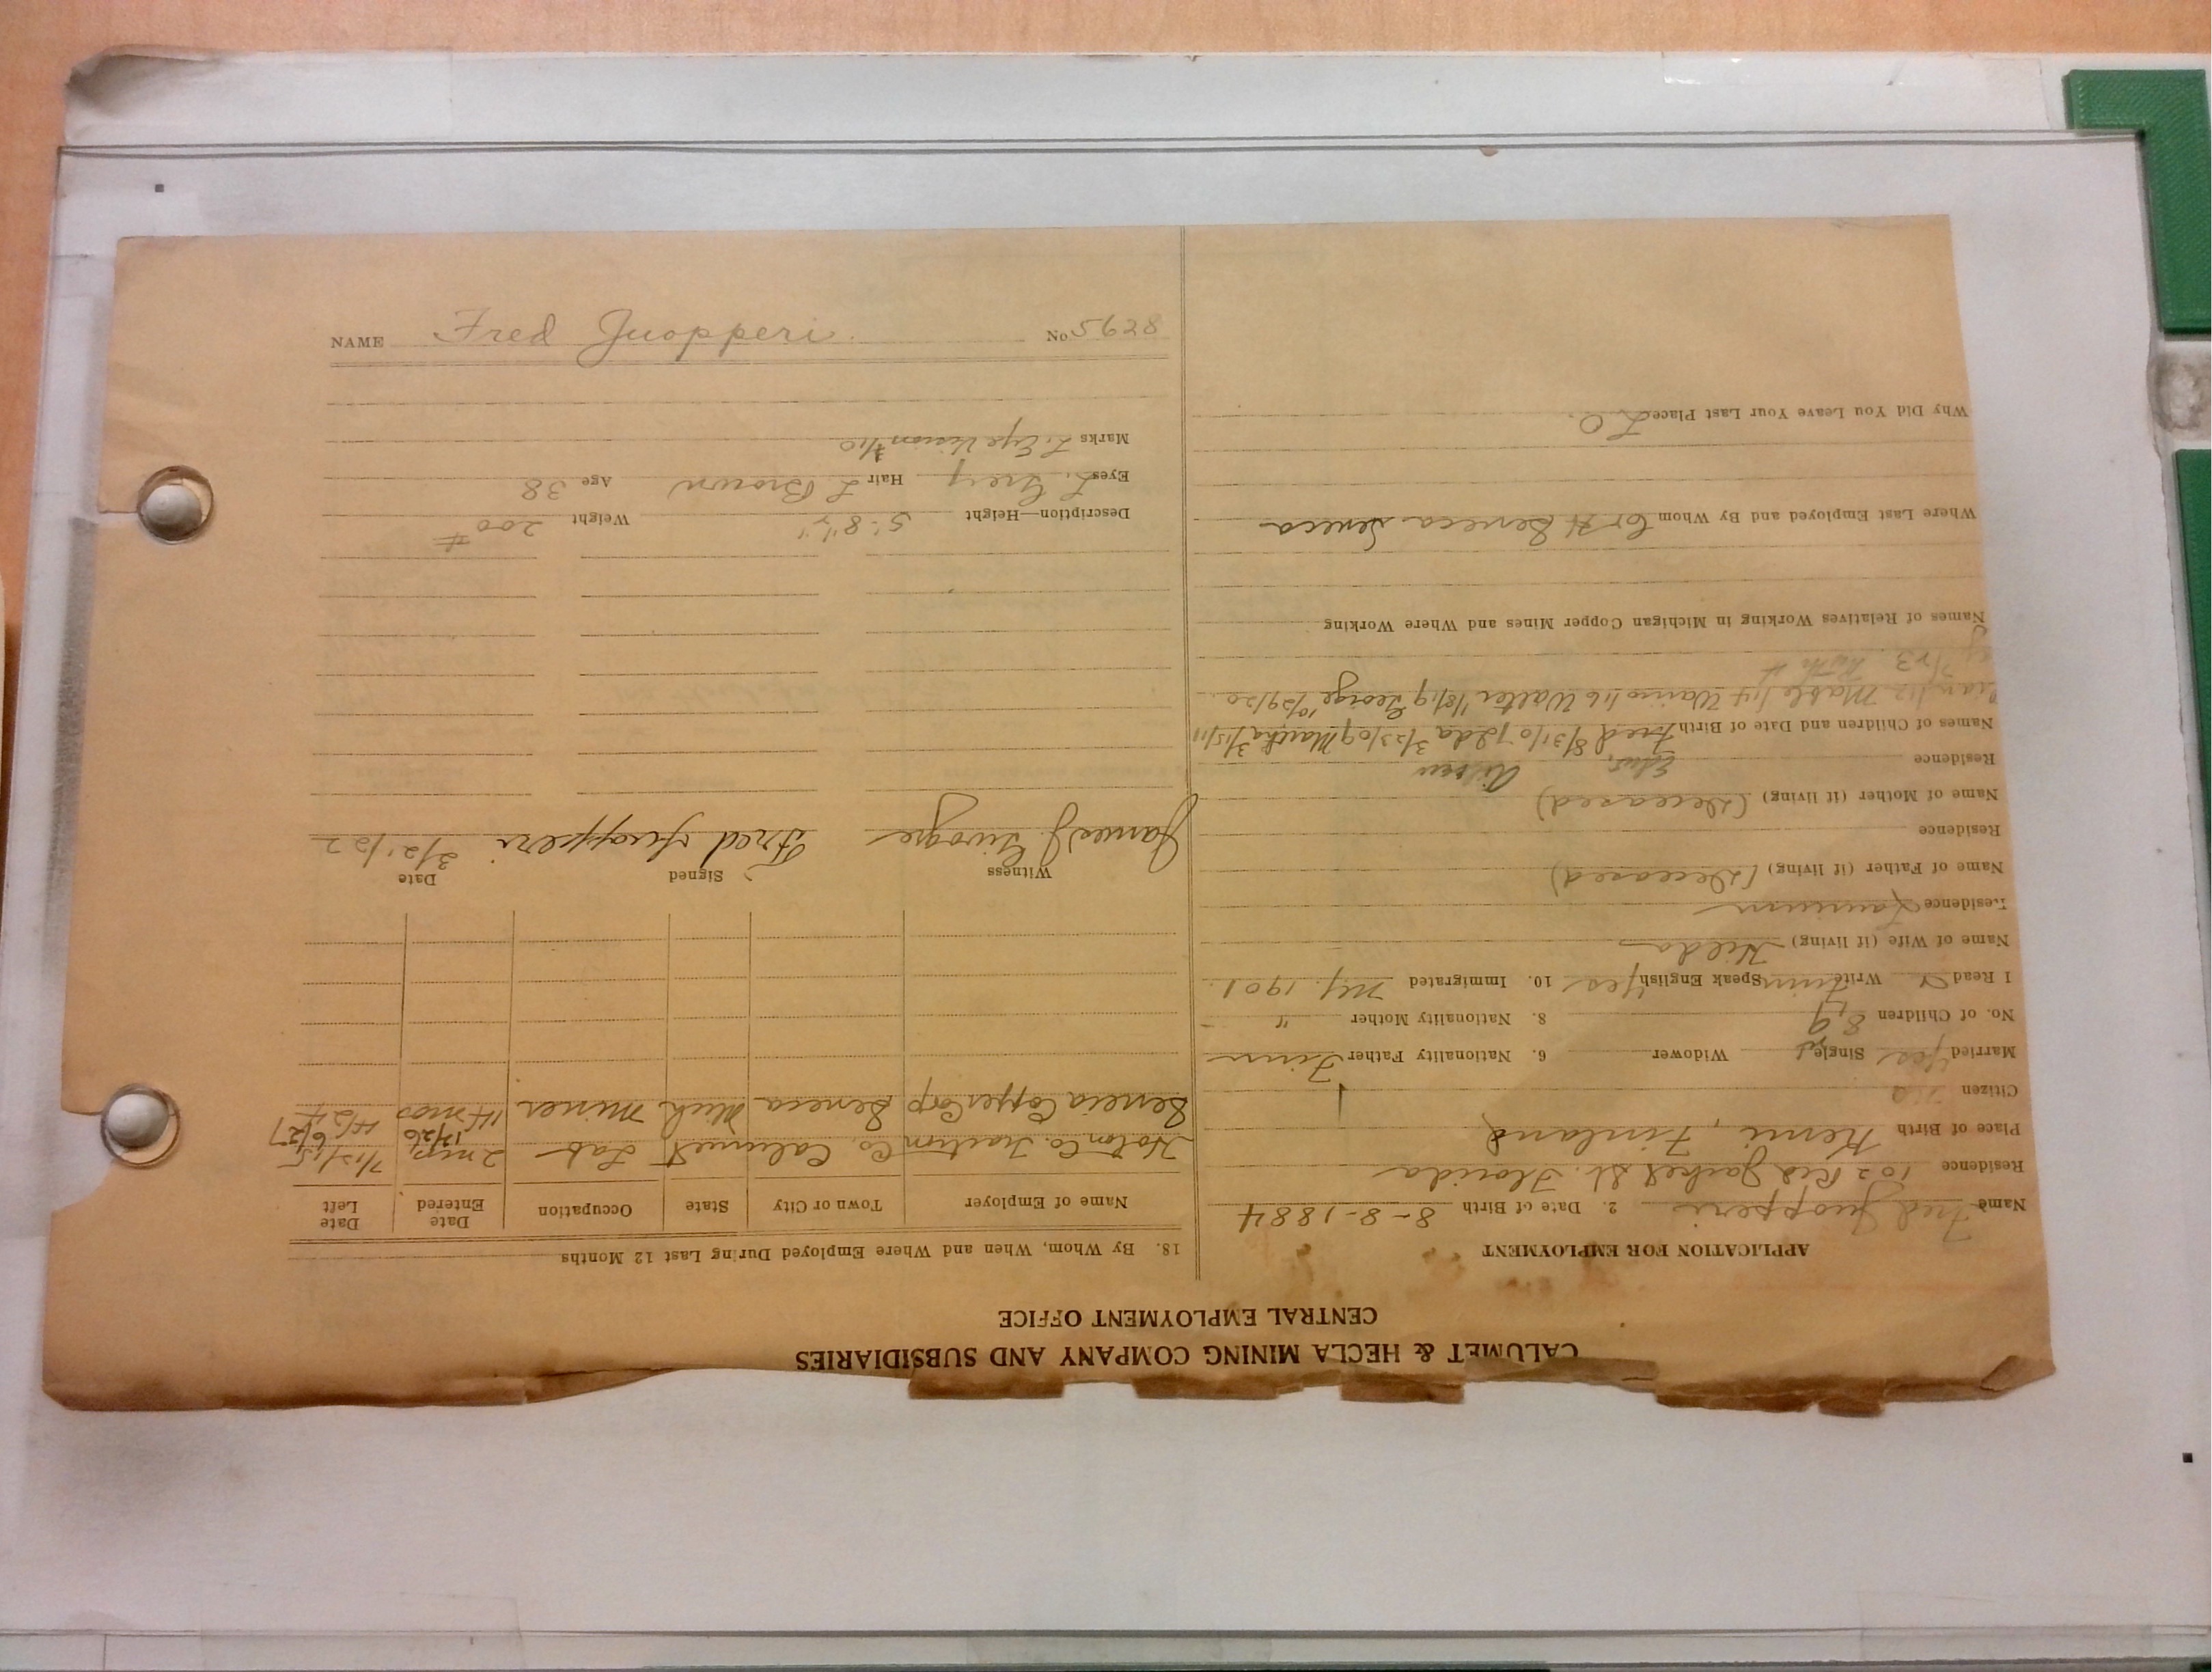 CALUMET & HECLA MINING COMPANY AND SUBSIDIARIES
CENTRAL EMPLOYMENT OFFICE
APPLICATION FOR EMPLOYMENT
Name Fred Juopperi 2. Date of Birth 8-8-1884
Residence 102 Red Jacket St. Florida
Place of Birth Kemi, Finland
Citizen no
Married yes Single Widower 6. Nationality Father Finn
No. of Children 8 9 8. Nationality Mother "
1 Read Write Finn Speak English Yes 10. Immigrated 1901
Name of Wife (if living) Hilda
Residence Laurium
Name of Father (if living) (Deceased)
Residence
Name of Mother (if living) (Deceased)
Residence
Names of Children and Date of Birth Fred 8/31/07 Ida 3/23/09 Martha 3/15/11
/12 Mable /14 Waino /16 Walter 1/8/19 George 10/29/20
Ruth
Names of Relatives Working in Michigan Copper Mines and Where Working
Where Last Employed and By Whom C & H Seneca Seneca
Why Did You Leave Your Last Place L O
18. By Whom, When and Where Employed During Last 12 Months
Name of Employer Town or City State Occupation Date Entered Date Left
Hoton Co. Traction Co. Calumet Lab 2 mos 12/26 7/12/15 6/27
Seneca Copper Corp Seneca Mich Miner 14 mos 4/24
Witness Signed Date
James J. Fred Juopperi 3/21/22
Description—Height 5' 8½" Weight 200 #
Eyes L. Grey Hair L Brown Age 38
Marks L. Eye Vision /10
NAME Fred Juopperi No 5628